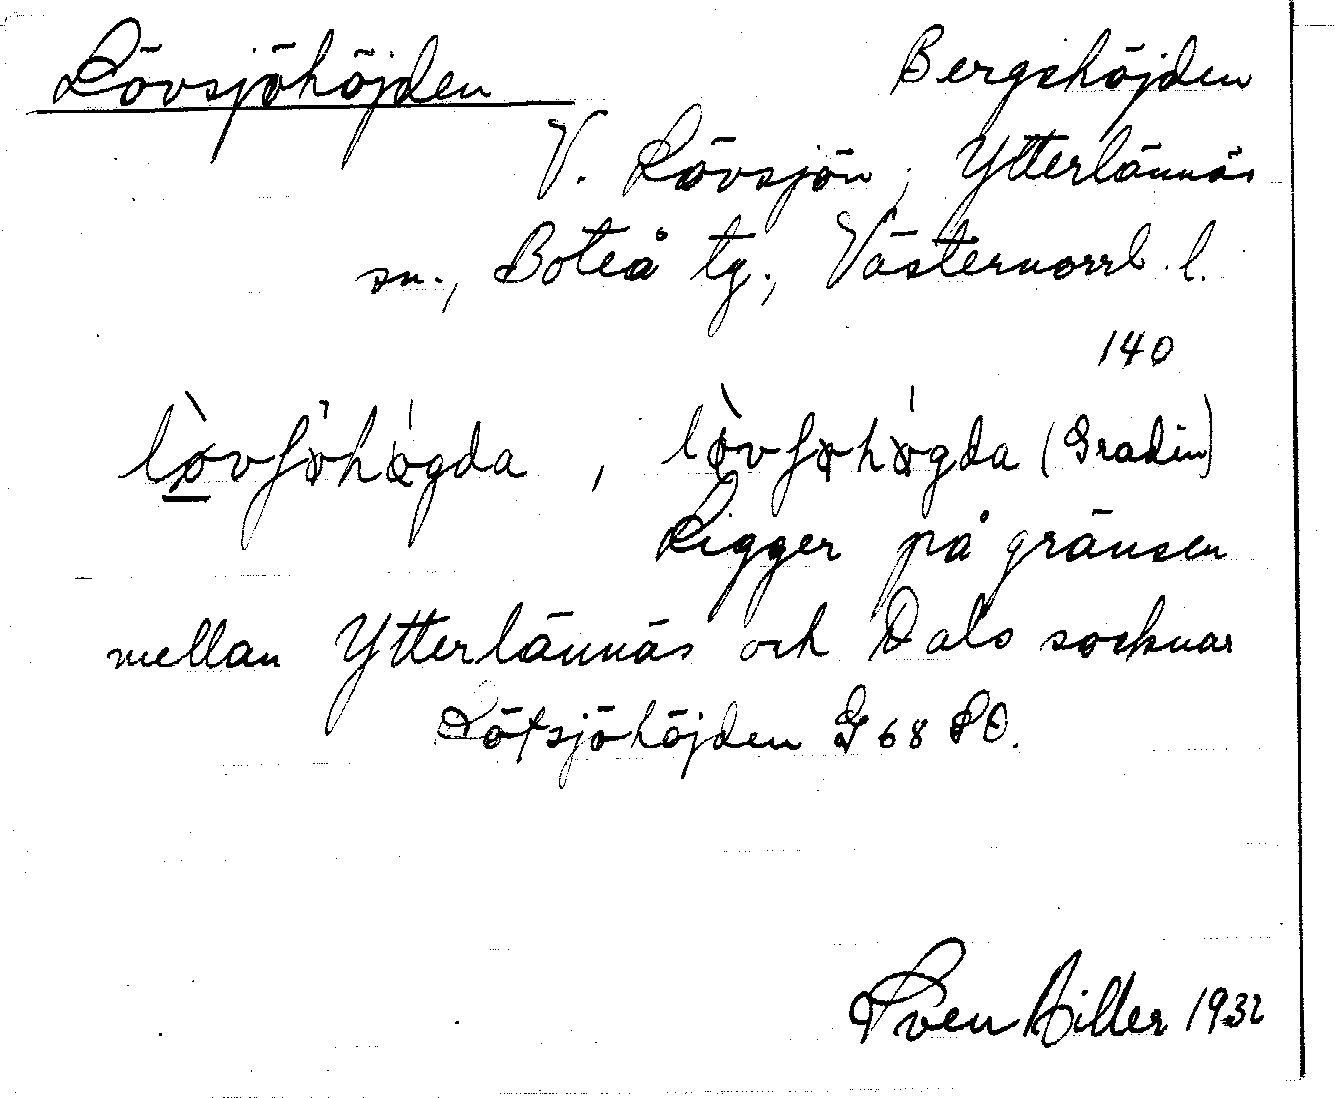 Lövsjöhöjden Bergshöjden
V. Lövsjön, Ytterlännäs
sn., Boteå tg., Västernorrl. l.
140
(Gradin)
Ligger på gränsen
mellan Ytterlännäs och Dals socknar
Lötsjöhöjden G 68 SO.
Sven Hiller 1932